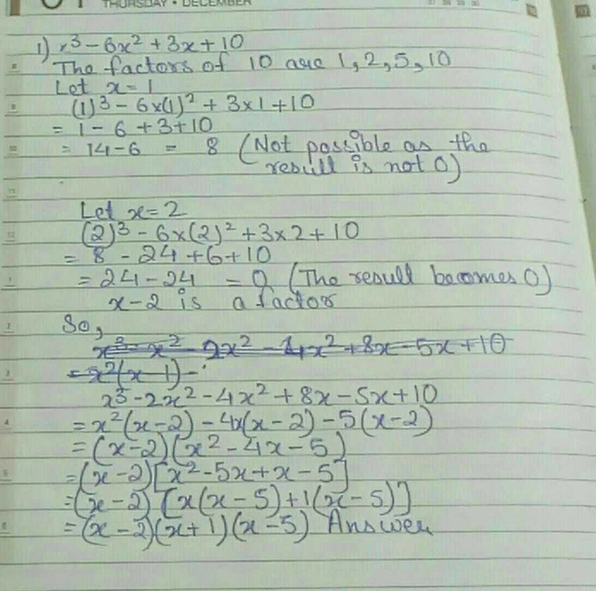 THURSDAY • DECEMBER
1) x³ - 6x² + 3x + 10
The factors of 10 are 1, 2, 5, 10
Let x = 1
(1)³ - 6×(1)² + 3×1 + 10
= 1 - 6 + 3 + 10
= 14 - 6 = 8 (Not possible as the
result is not 0)
Let x = 2
(2)³ - 6×(2)² + 3×2 + 10
= 8 - 24 + 6 + 10
= 24 - 24 = 0 (The result becomes 0)
x - 2 is a factor
So,
x³ - x² - 2x² - 4x² + 8x - 5x + 10
= x²(x - 1) -
x³ - 2x² - 4x² + 8x - 5x + 10
= x²(x - 2) - 4x(x - 2) - 5(x - 2)
= (x - 2)(x² - 4x - 5)
= (x - 2)[x² - 5x + x - 5]
= (x - 2)[x(x - 5) + 1(x - 5)]
= (x - 2)(x + 1)(x - 5) Answer